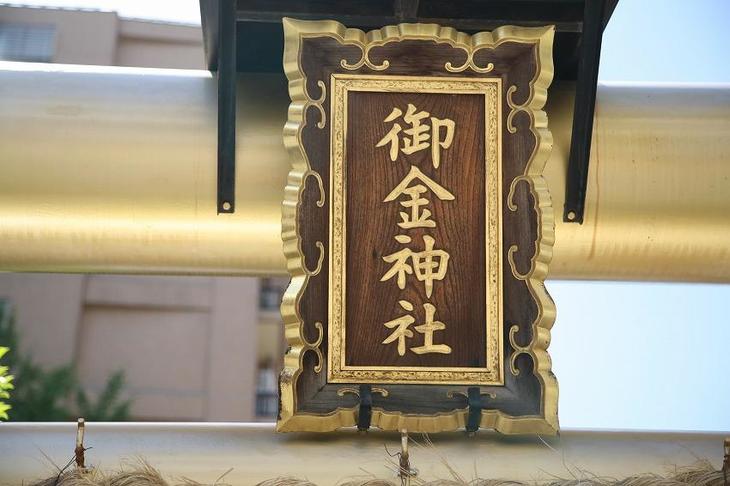 御金神社